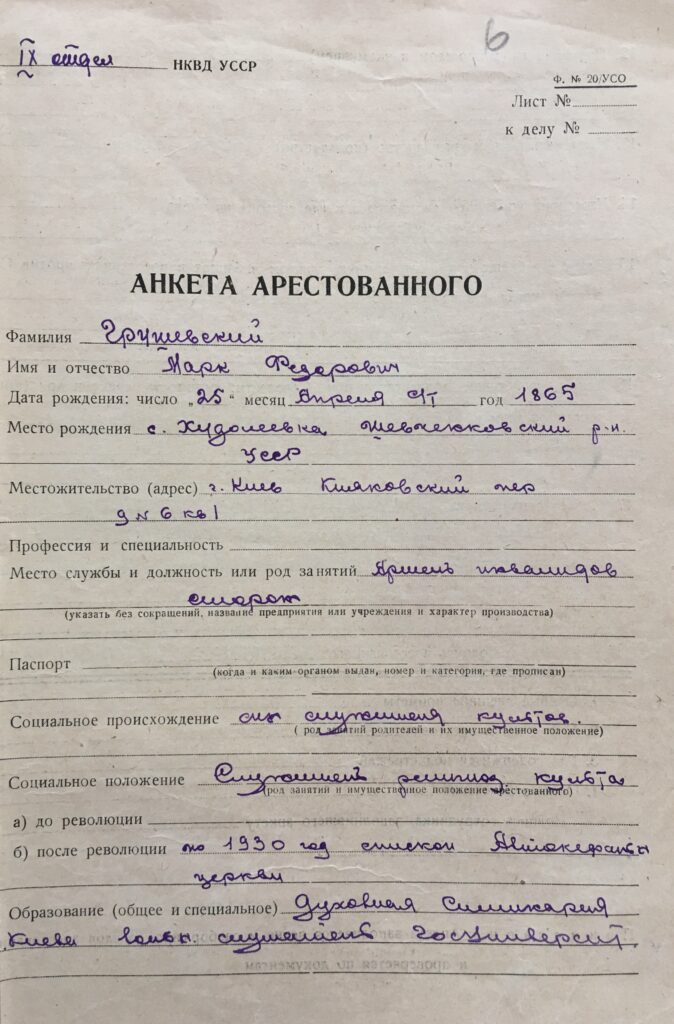 6
IX отдел НКВД УССР
Ф. № 20/УСО
Лист №
к делу №
АНКЕТА АРЕСТОВАННОГО
Фамилия Грушевский
Имя и отчество Марк Федорович
Дата рождения: число „25“ месяц Апреля с/ст год 1865
Место рождения с. Худолеевка Шевченковский р-н.
УССР
Местожительство (адрес) г. Киев Кияновский пер
д № 6 кв 1
Профессия и специальность
Место службы и должность или род занятий Артель инвалидов
сторож
(указать без сокращений, название предприятия или учреждения и характер производства)
Паспорт
(когда и каким органом выдан, номер и категория, где прописан)
Социальное происхождение сын служителя культов.
( род занятий родителей и их имущественное положение)
Социальное положение Служитель религиоз. культа
(род занятий и имущественное положение арестованного)
а) до революции
б) после революции по 1930 год епископ Автокефальн
церкви
Образование (общее и специальное) Духовная Семинария
Киева вольн. слушатель Госуниверсит.